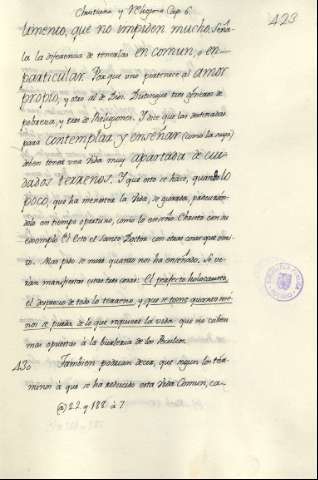 Christiana y Religiosa Cap. 6.
423
lamento, que no impiden mucho. Seña-
la la diferencia de tenerlas en comun, y en
particular. Porque uno pertenece al amor
propio, y otro al de Dios. Distingue tres géneros de
pobreza, y tres de Religiones. Y dice que las destinadas
para contemplar, y enseñar (como la suya)
deben tener una vida muy apartada de cui-
dados terrenos. Y que esto se hace, quando lo
poco, que ha menester la Vida, se guarda, procurán-
dolo en tiempo oportuno, como lo enseñó Christo con su
exemplo. @ Esto el Santo Doctor con otras cosas que omi-
to. Mas poco se mira quanto nos ha enseñado. Si ve-
rian manifiestas estas tres cosas: El perfecto holocausto,
el desprecio de todo lo terreno, y que se tome quanto me-
nos se pueda de lo que requiere la vida: que no caben
mas opuestas á la
430 Tambien podrian decir, que segun los tér-
minos á que se ha reducido esta Vida Comun, ca-
(@) 2.2 q 188 à 7